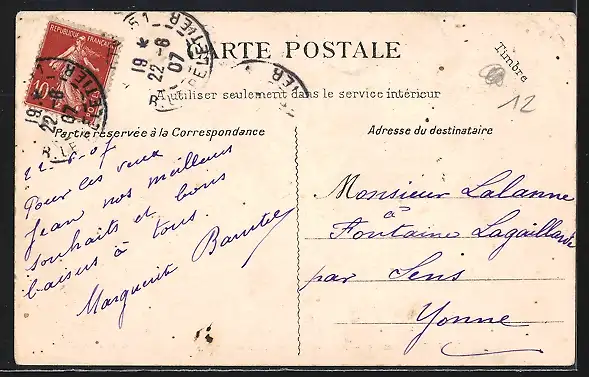 RÉPUBLIQUE FRANÇAISE
10
CARTE POSTALE
Timbre
A utiliser seulement dans le service intérieur
12
19 * 22-6 07
R. LE PELETIER
Partie réservée à la Correspondance
Adresse du destinataire
22-6-07
Pour les
Jean nos meilleurs
souhaits et bons
baisers à tous.
Marguerite
Monsieur Lalanne
à
Fontaine Lagaillarde
par Sens
Yonne